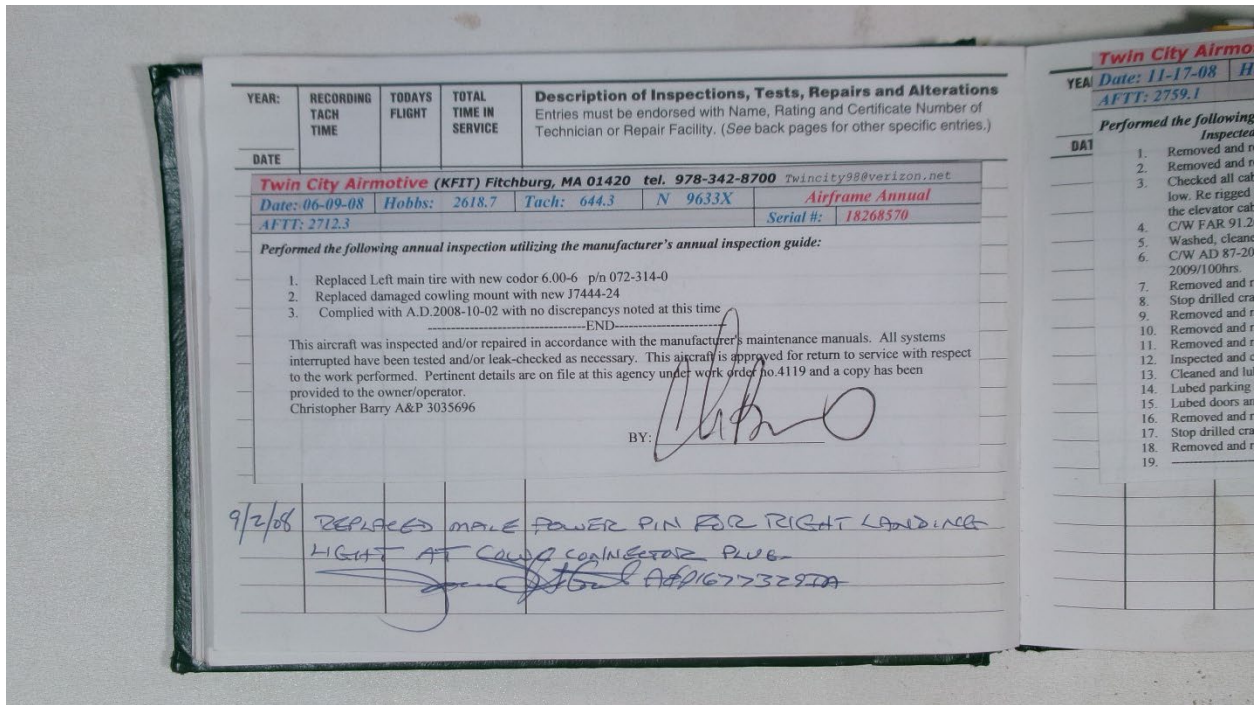 YEAR: RECORDING TACH TIME TODAYS FLIGHT TOTAL TIME IN SERVICE
DATE
Description of Inspections, Tests, Repairs and Alterations
Entries must be endorsed with Name, Rating and Certificate Number of
Technician or Repair Facility. (See back pages for other specific entries.)
Twin City Airmotive (KFIT) Fitchburg, MA 01420 tel. 978-342-8700 Twincity98@verizon.net
Date: 06-09-08 Hobbs: 2618.7 Tach: 644.3 N 9633X Airframe Annual
AFTT: 2712.3 Serial #: 18268570
Performed the following annual inspection utilizing the manufacturer's annual inspection guide:
1. Replaced Left main tire with new codor 6.00-6 p/n 072-314-0
2. Replaced damaged cowling mount with new J7444-24
3. Complied with A.D.2008-10-02 with no discrepancys noted at this time
-----END-----
This aircraft was inspected and/or repaired in accordance with the manufacturer's maintenance manuals. All systems
interrupted have been tested and/or leak-checked as necessary. This aircraft is approved for return to service with respect
to the work performed. Pertinent details are on file at this agency under work order no.4119 and a copy has been
provided to the owner/operator.
Christopher Barry A&P 3035696
BY:
9/2/08 REPLACED MALE POWER PIN FOR RIGHT LANDING
LIGHT AT COWL CONNECTOR PLUG
A&P1677329IA
Twin City Airmo
YEA Date: 11-17-08 H
AFTT: 2759.1
Performed the following
Inspected
DAT
1. Removed and r
2. Removed and r
3. Checked all cab
low. Re rigged
the elevator cab
4. C/W FAR 91.2
5. Washed, cleane
6. C/W AD 87-20
2009/100hrs.
7. Removed and r
8. Stop drilled cra
9. Removed and r
10. Removed and r
11. Removed and r
12. Inspected and c
13. Cleaned and lu
14. Lubed parking
15. Lubed doors an
16. Removed and r
17. Stop drilled cra
18. Removed and r
19.